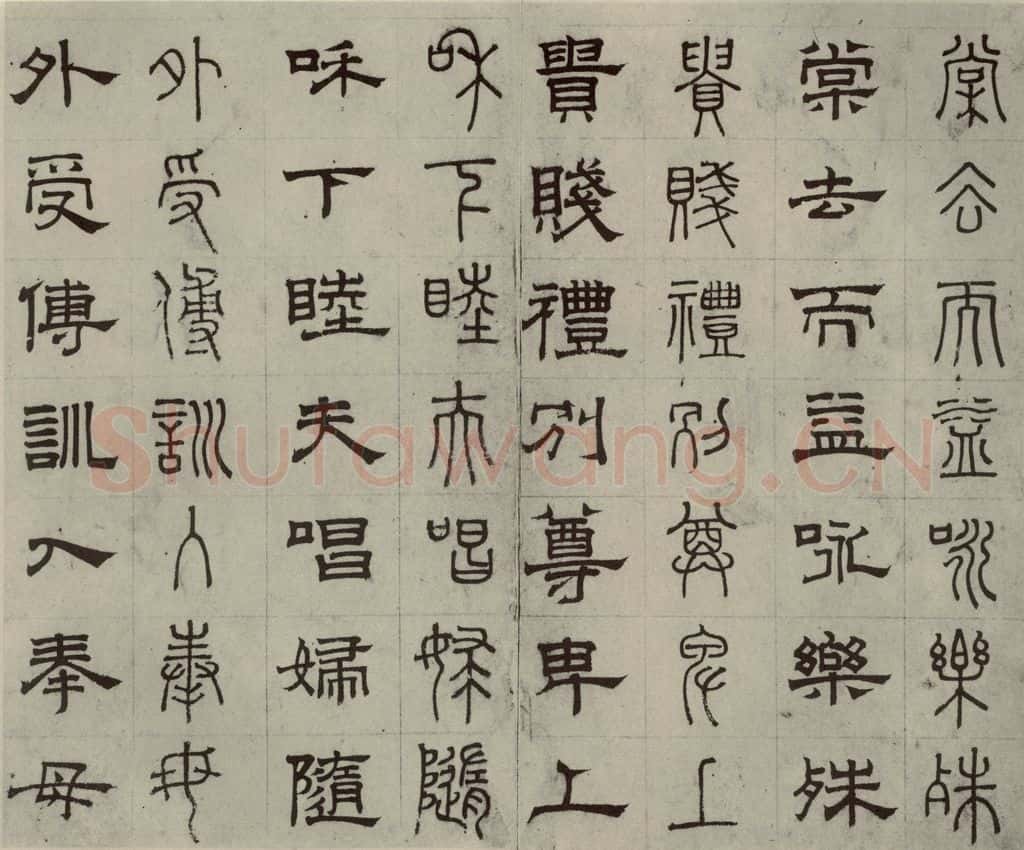 棠去而益咏樂殊
棠去而益咏樂殊
貴賤禮別尊卑上
貴賤禮別尊卑上
和下睦夫唱婦隨
咊下睦夫唱婦隨
外受傅訓入奉母
外受傅訓入奉母
Shufawang.CN